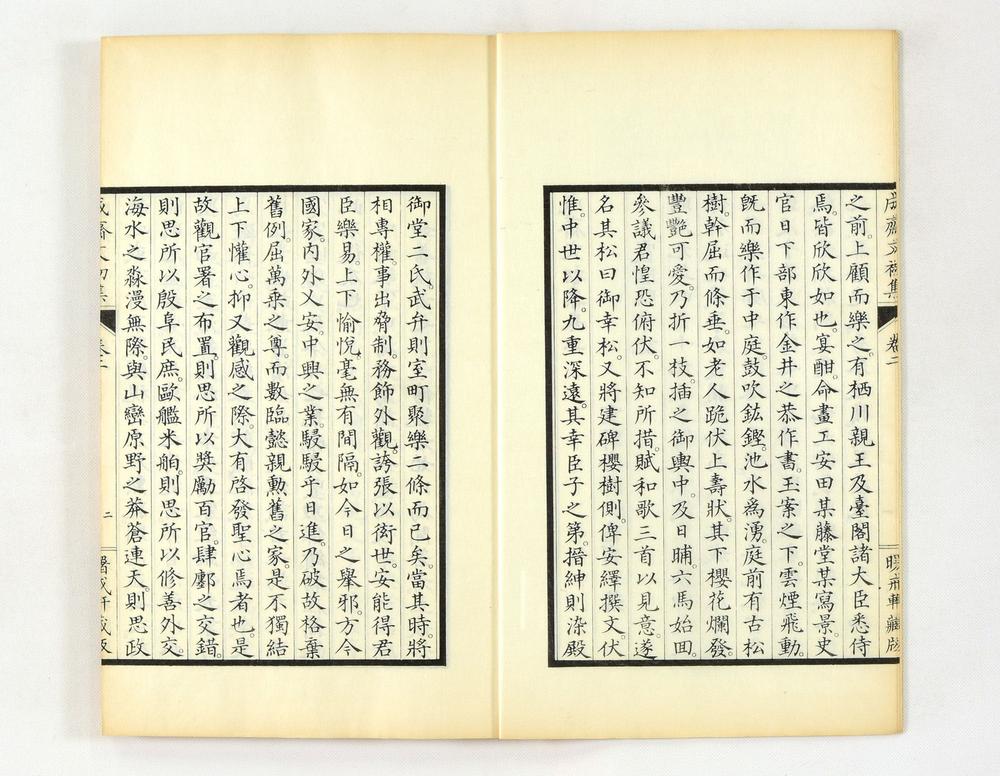 之前。上顧而樂之。有栖川親王及臺閣諸大臣悉侍
焉。皆欣欣如也。宴酣。命畫工安田某藤堂某寫景。史
官日下部東作金井之恭作書。玉案之下。雲煙飛動。
既而樂作于中庭。鼓吹鈜鏗。池水爲湧。庭前有古松
樹。幹屈而條垂。如老人跪伏上壽狀。其下櫻花爛發。
豐艷可愛。乃折一枝。插之御輿中。及日晡。六馬始回。
參議君惶恐俯伏。不知所措。賦和歌三首以見意。遂
名其松曰御幸松。又將建碑櫻樹側。俾安繹撰文。伏
惟。中世以降。九重深遠。其幸臣子之第。搢紳則染殿
御堂二氏。武弁則室町聚樂二條而已矣。當其時。將
相專權。事出脅制。務飾外觀。誇張以衒世。安能得君
臣樂易。上下愉悅。毫無有間隔。如今日之舉邪。方今
國家。內外乂安。中興之業。駸駸乎日進。乃破故格。棄
舊例。屈萬乘之尊。而數臨懿親勳舊之家。是不獨結
上下懽心。抑又觀感之際。大有啓發聖心焉者也。是
故觀官署之布置。則思所以奬勵百官。肆鄽之交錯。
則思所以殷阜民庶。歐艦米舶。則思所以修善外交。
海水之淼漫無際。與山巒原野之莽蒼連天。則思政
卷二
二